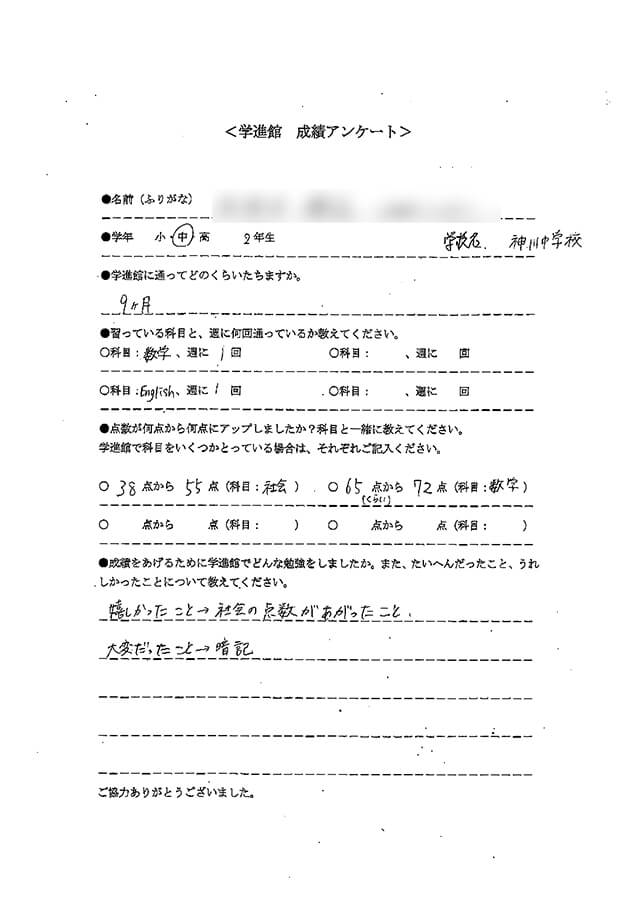 ＜学進館　成績アンケート＞
●名前（ふりがな）
●学年　小・中・高　2年生　学校名．神川中学校
●学進館に通ってどのくらいたちますか。
9ヶ月
●習っている科目と、週に何回通っているか教えてください。
○科目：数学、週に 1 回　○科目：　、週に　回
○科目：English、週に 1 回　○科目：　、週に　回
●点数が何点から何点にアップしましたか？科目と一緒に教えてください。
学進館で科目をいくつかとっている場合は、それぞれご記入ください。
○ 38 点から 55 点（科目：社会）　○ 65 点から 72 点（科目：数学）
(くらい)
○　点から　点（科目：　）　○　点から　点（科目：　）
●成績をあげるために学進館でどんな勉強をしましたか。また、たいへんだったこと、うれ
しかったことについて教えてください。
嬉しかったこと→社会の点数があがったこと．
大変だったこと→暗記
ご協力ありがとうございました。